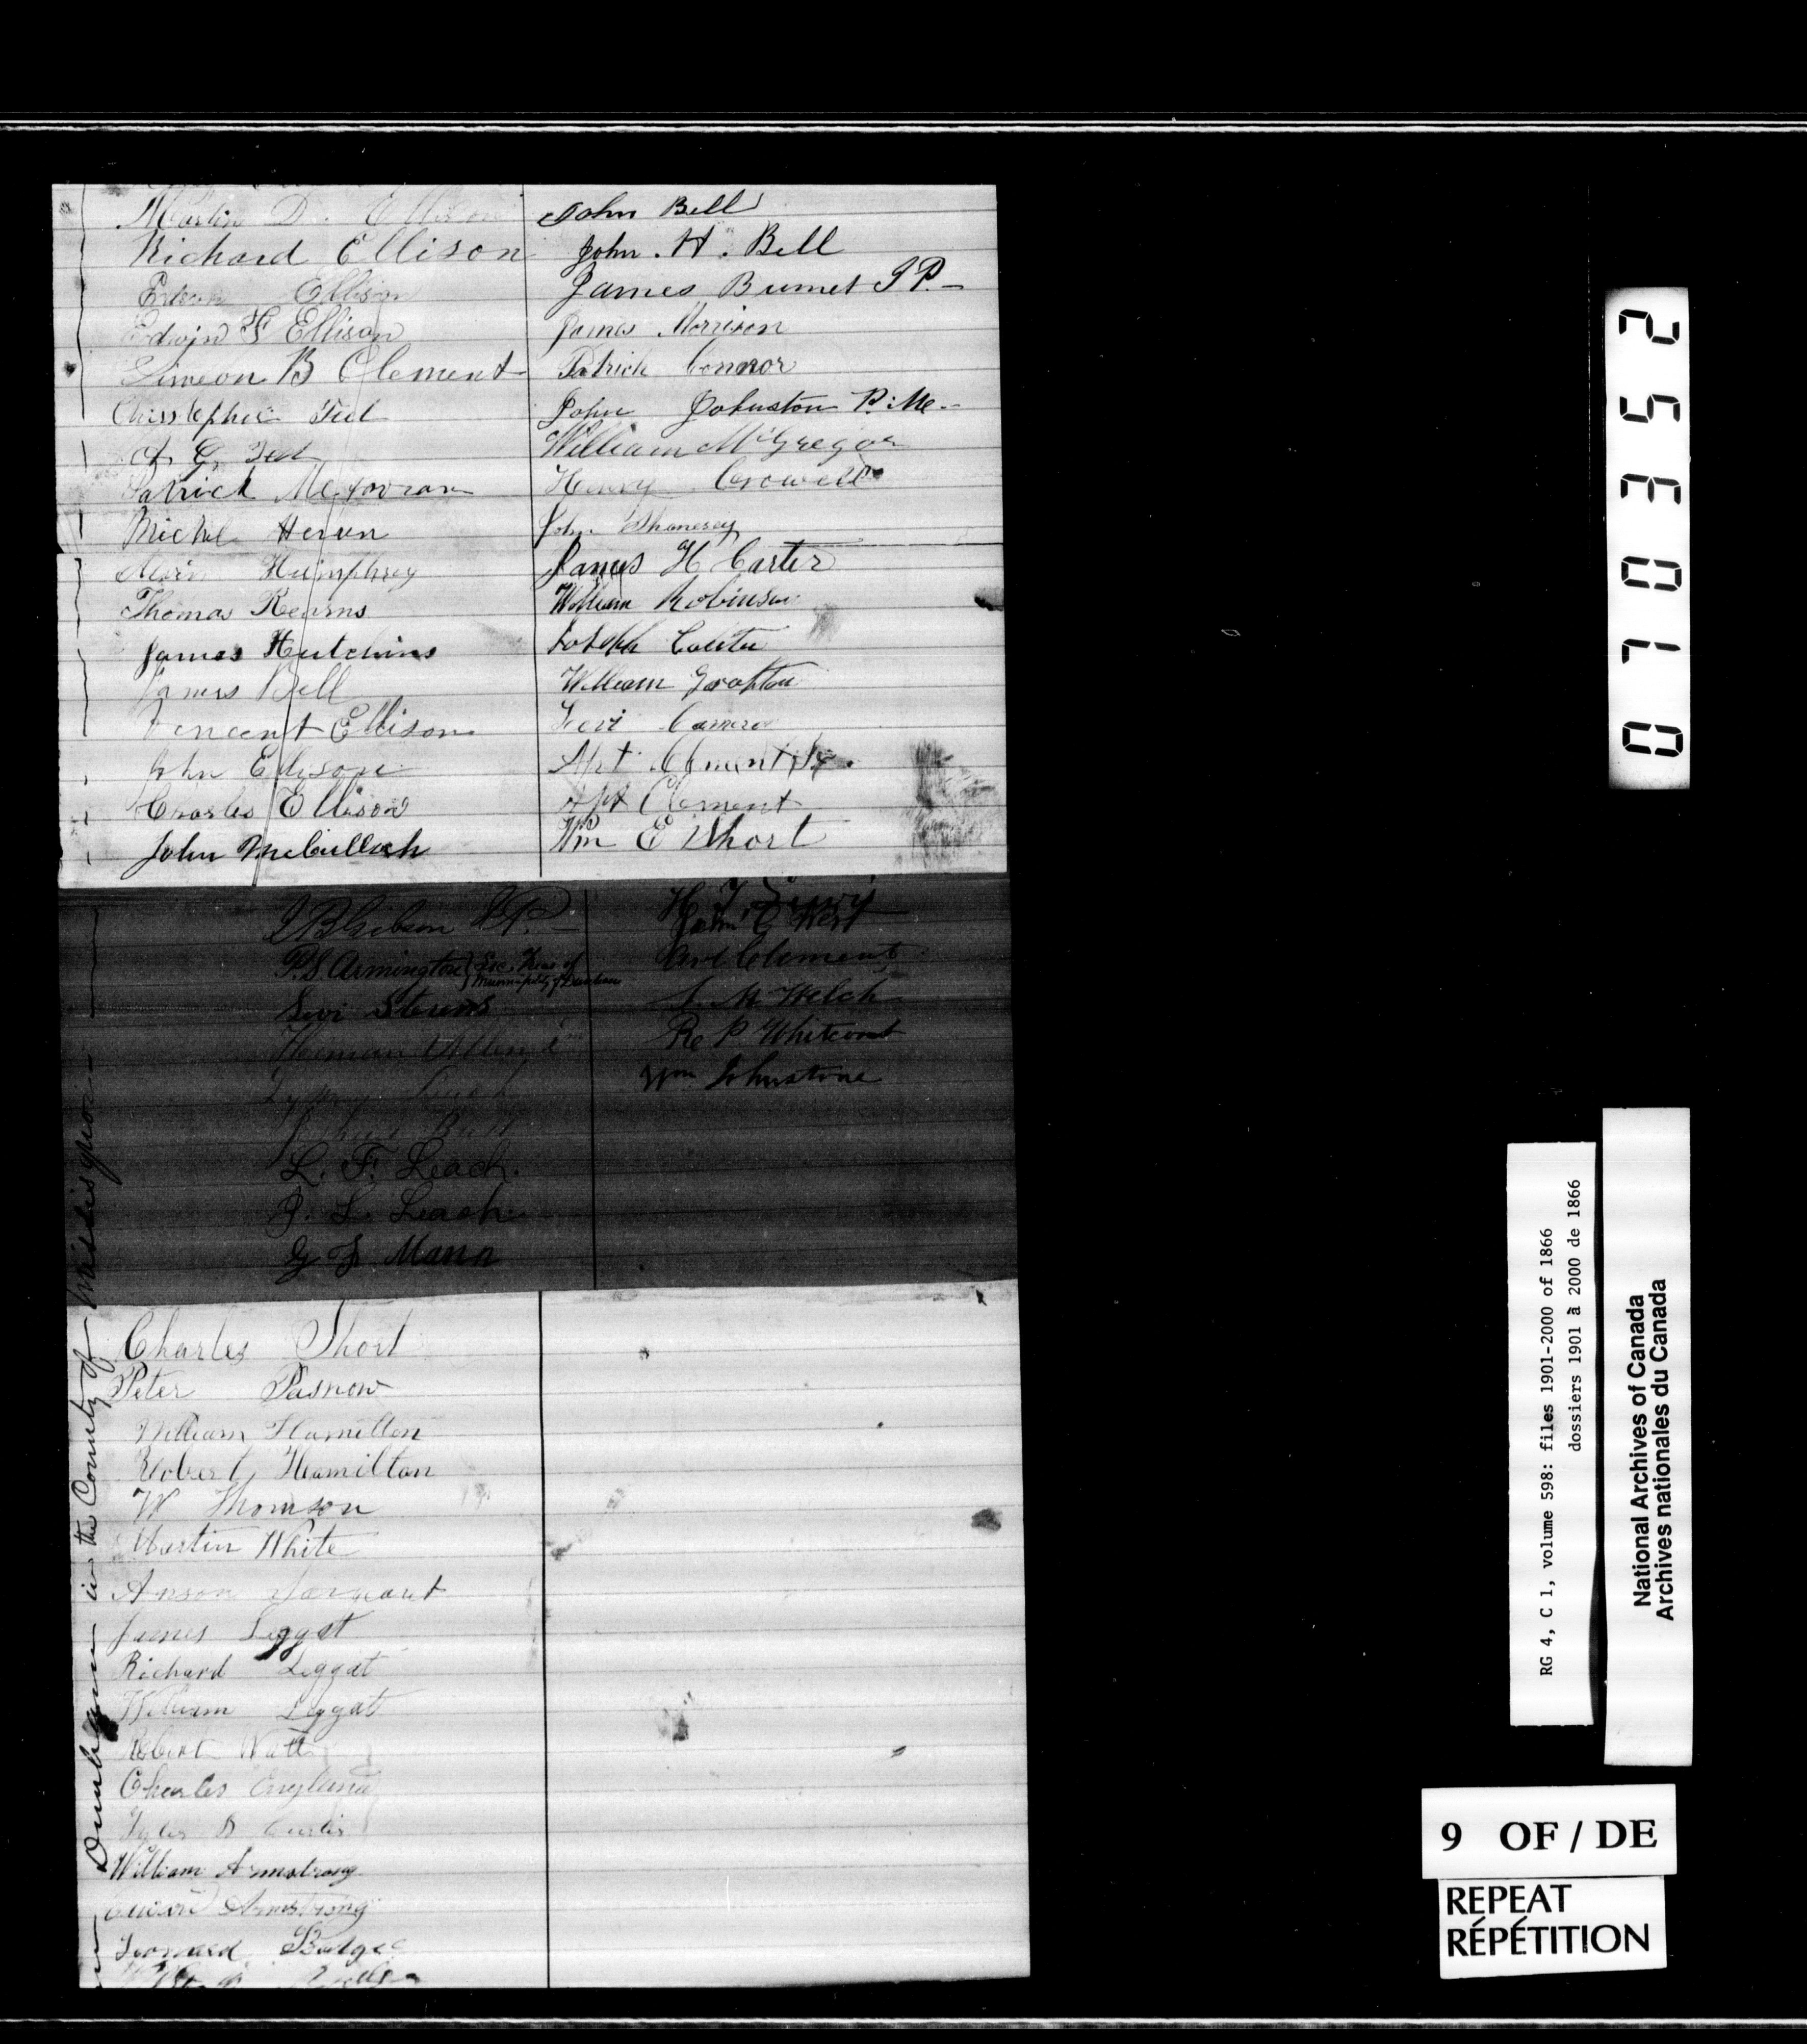 Martin D. Ellison
Richard Ellison
Ellison
Edwin F Ellison
Simeon B Clement
Christopher Teel
Teel
Patrick McGovran
Michel Heren
Humphrey
Thomas Kearns
James Hutchins
James Bell
Vincent Ellison
John Ellyson
Charles Ellison
John McCulloch
John Bell
John . H . Bell
James Burnet J P. -
James Morrison
Patrick Connor
John Johnston P. Me.-
William McGregor
Henry Crowell
John Shanesey
James H Carter
William Robinson
Joseph
William Grafton
Levi Cameron
Clement
Clement
Wm E Short
J B Gibson J P. -
P. S. Armington } Sec. Treas of Municipality of Dunham
Levi Stevens
Heman Allen
Leach
L. F. Leach.
J. L. Leach
G F Mann
H. T.
John C West
Clement
S. M Welch
Whitcomb
Wm Johnstone
Charles Short
Peter Pasnow
William Hamilton
Robert Hamilton
W Thomson
Martin White
Anson
James Leggat
Richard Leggat
William Leggat
Robert Watt
Charles England
Tyler B Curtis
William Armstrong
Edward Armstrong
Leonard Badger
Dunham in the County of Missisquoi -
070352
RG 4, C 1, volume 598: files 1901-2000 of 1866
dossiers 1901 à 2000 de 1866
National Archives of Canada
Archives nationales du Canada
9 OF / DE
REPEAT
RÉPÉTITION